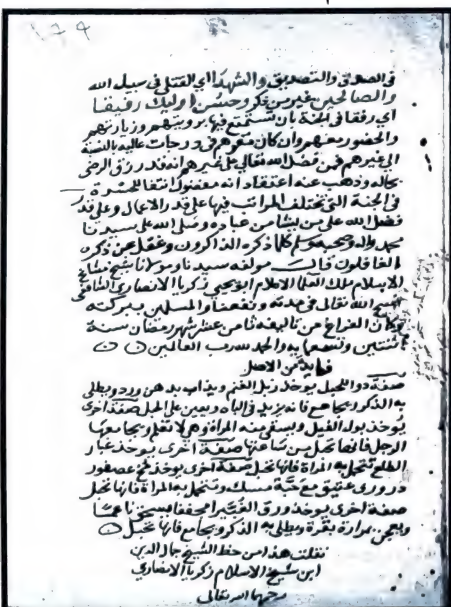 ١٧٩
في الصدق والتصديق والشهدا اي القتلى في سبيل الله
والصالحين غير من ذكر وحسن اوليك رفيقا
اي رفقا في الجنة بان يستمتع فيها برويتهم وزيارتهم
والحضور معهم وان كان مقرهم في درجات عالية بالنسبة
الى غيرهم فمن فضل الله تعالى على غيرهم انه قد رزق الرضى
بحاله وذهب عنه اعتقاد انه مفضول انتفا للحسرة
في الجنة التي تختلف المراتب فيها على قدر الاعمال وعلى قدر
فضل الله على من يشا من عباده وصلى الله على سيدنا
محمد واله وصحبه وسلم كلما ذكره الذاكرون وغفل عن ذكره
الغافلون قال مولفه سيدنا ومولانا شيخ مشايخ
الاسلام ملك العلما الاعلام ابو يحيى زكريا الانصاري الشافعي
الله تعالى في مدته ونفعنا والمسلمين ببركته
وكان الفراغ من تاليفه ثامن عشر شهر رمضان سنة
اثنتين وتسعماية والحمد لله رب العالمين
من الاصل
صفة دوا للحبل يوخذ زبل الغنم ويذاب بدهن ورد ويطلى
به الذكر ويجامع فانه يزيد في الباه ويعين على الحبل صفة اخرى
يوخذ بول الفيل ويسقى منه المراة وهي لا تعلم ويجامعها
الرجل فانها تحبل من ساعتها صفة اخرى يوخذ غبار
الطلع تتحمل به امراة فانها تحبل صفة اخرى يوخذ مخ عصفور
دوري عتيق مع حبة مسك وتتحمل به المراة فانها تحبل
صفة اخرى يوخذ ورق الغبيرا مجففا يسحق ناعما
ويعجن بمرارة بقرة ويطلى به الذكر ويجامع فانها تحبل
نقلت هذا من خط الشيخ جمال الدين
ابن شيخ الاسلام زكريا الانصاري
رحمهما الله تعالى